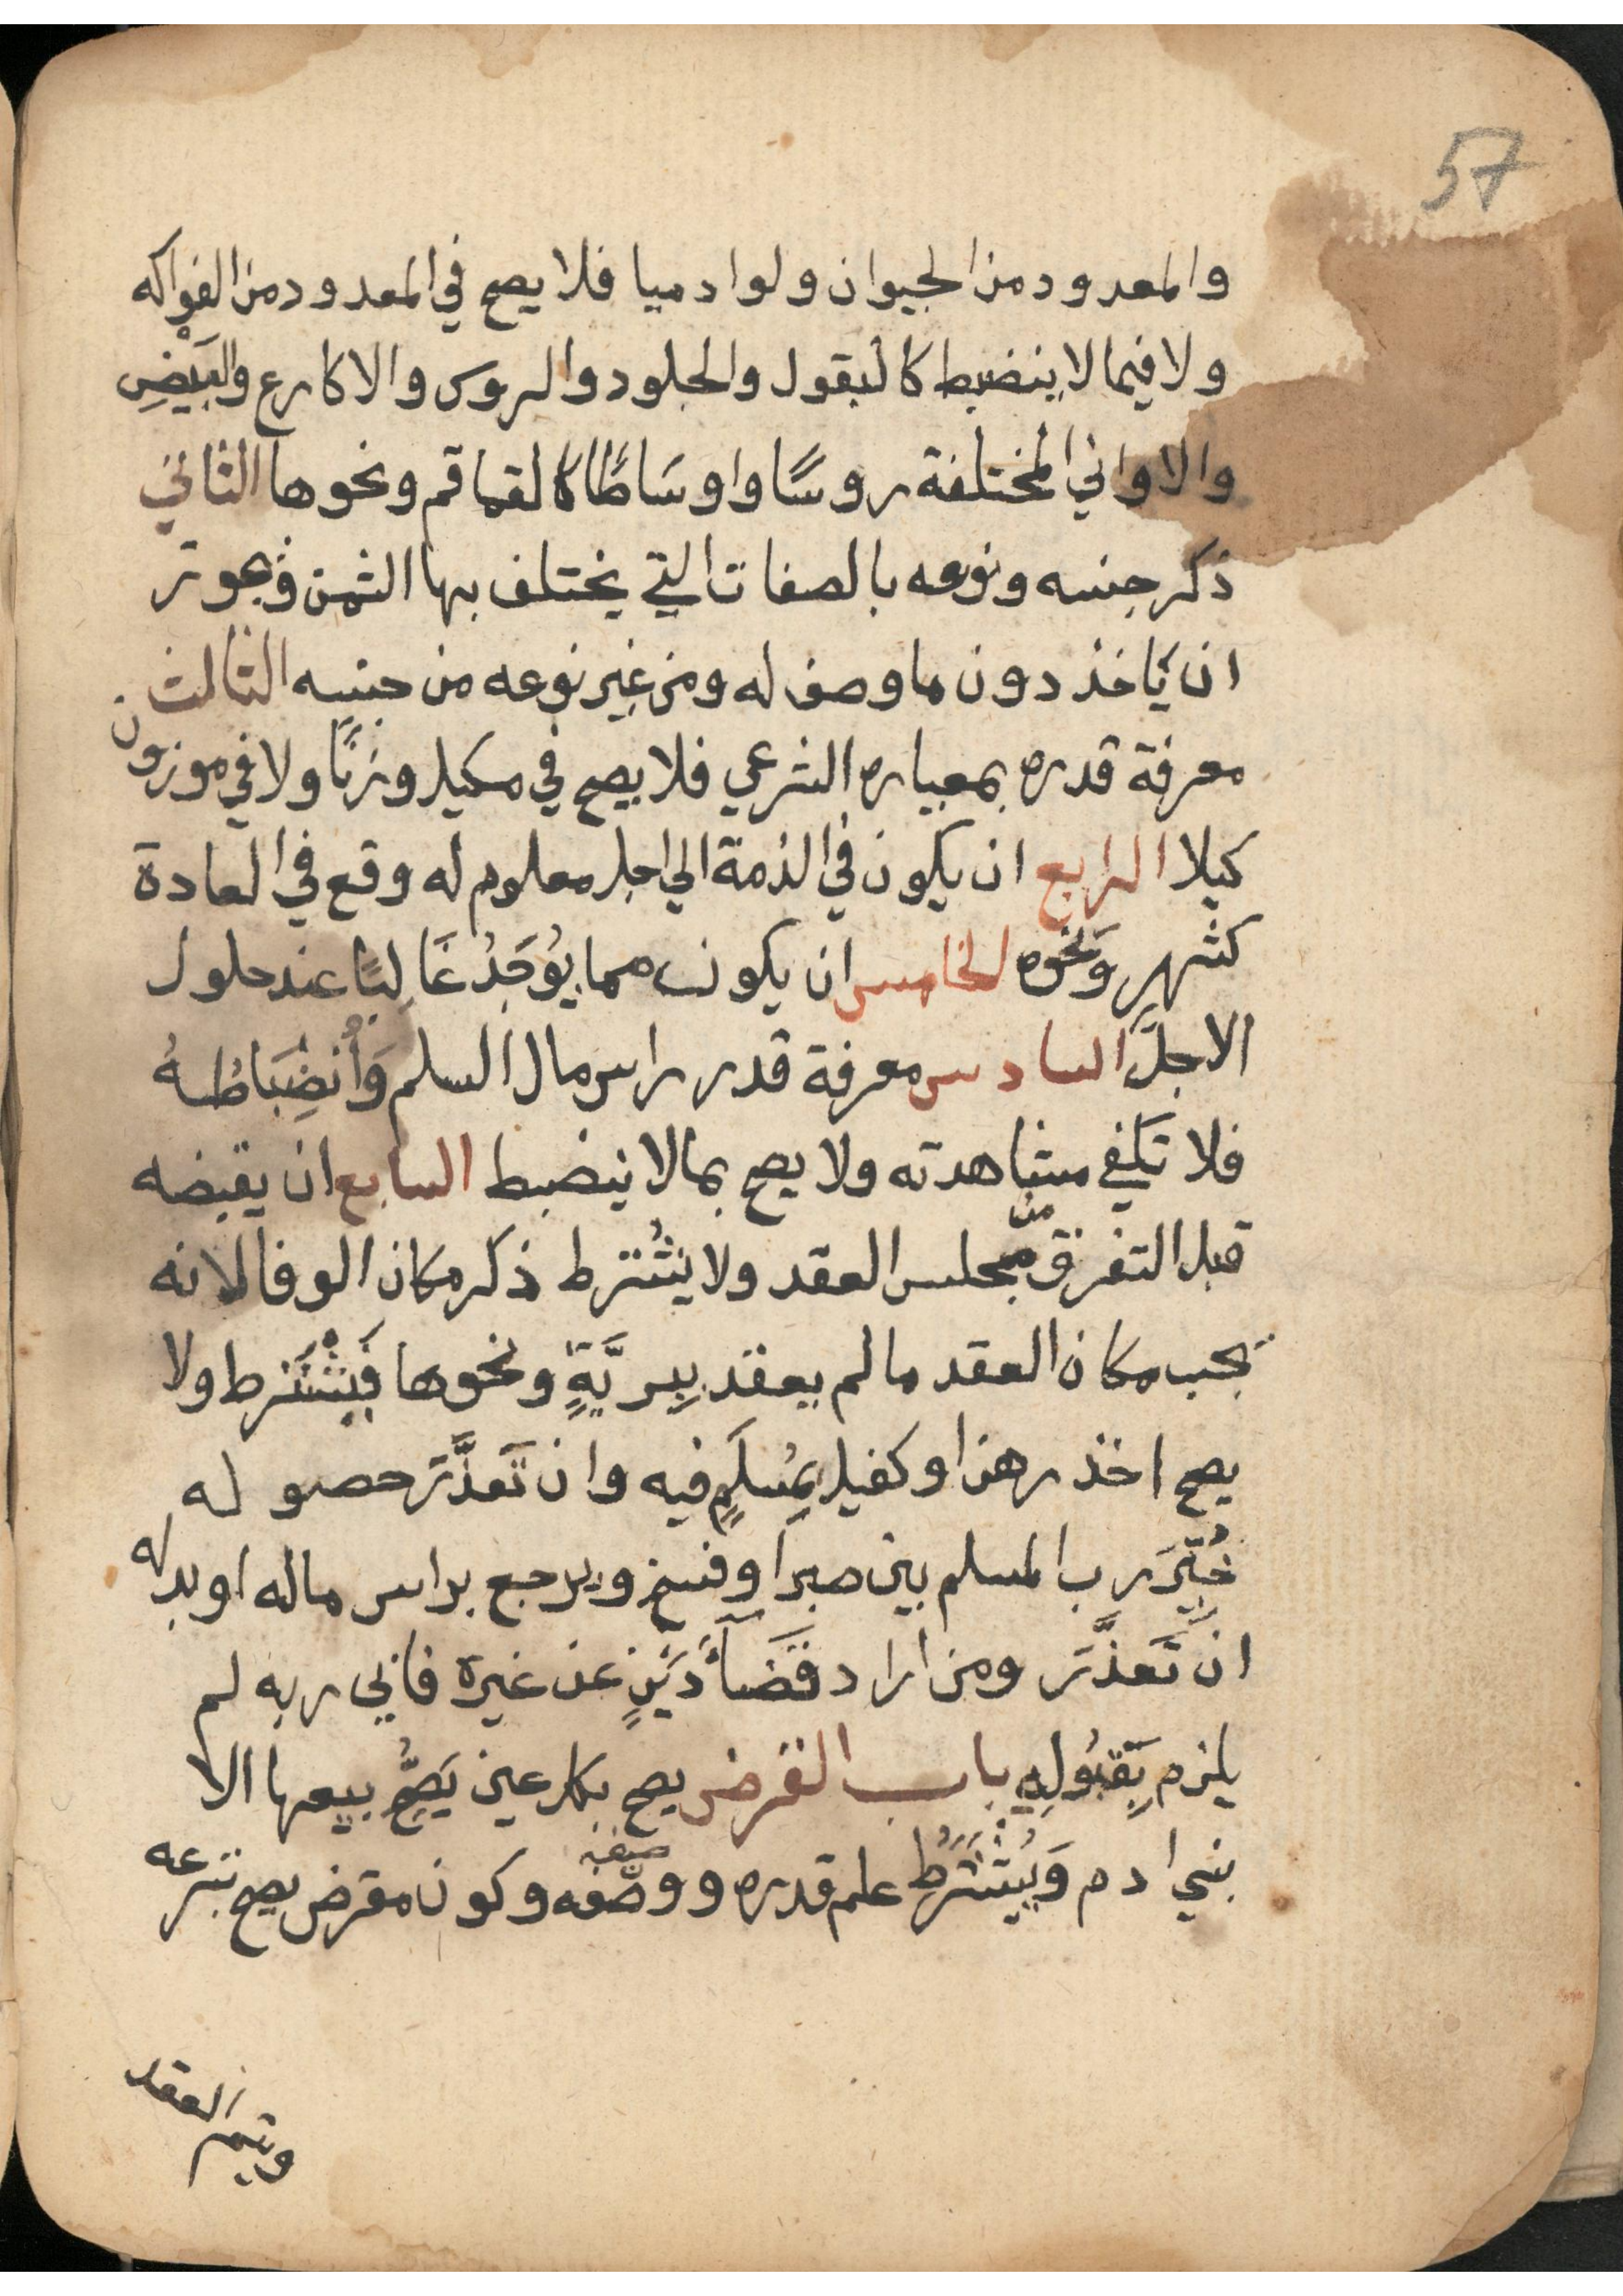 57
والمعدود من الحيوان ولو ادميا فلا يصح في المعدود من الفواكه
ولا فيما لا ينضبط كالبقول والجلود والروس والاكارع والبَيْضِ
والاواني المختلفة روسًا واوسَاطًا كالقماقم ونحوها الثاني
ذكر جنسه ونوعه بالصفات التي يختلف بها الثمن ويجوز
ان يَّاخذ دون ما وصف له ومن غير نوعه من جنسه الثالث
معرفة قدره بمعياره الشرعي فلا يصح في مكيل وزنًا ولا في موزون
كيلا الرابع ان يكون في الذمة الي اجل معلوم له وقع في العادة
كشهرٍ وَنحوه الخامس ان يكون مما يُوْجَدُ غَالِبًا عند حلول
الاجلَِ السادس معرفة قدر راس مال السلم وَأنضِبَاطُهُ
فلا تكفي مشاهدته ولا يصح بما لا ينضبط السابع ان يقبضه
قبل التفرق من مجلس العقد ولا يشُترط ذكر مكان الوفا لانه
يجب مكان العقد ما لم يعقد بِبرِيَّةٍ ونحوها فَيُشْتَرط ولا
يصح اخذ رهن او كفيل بمُسلَمٍ فيه وان تَعذَّرَ حصوله
خُيِّرَ رب المسلم بين صبر او فسخ ويرجع براس ماله او بدله
ان تَعذَّرَ ومن اراد قَضَآءَ دَيْنٍ عن غيره فابي ربه لم
يلزم بِقبُولِهِ باب القرض يصح بكل عين يَصِحُّ بيعها الا
بني ادم وَيُشْتَرَطُ علم قدره ووصْفه صفته وكون مقرض يصح تبرعه
ويتم العقد